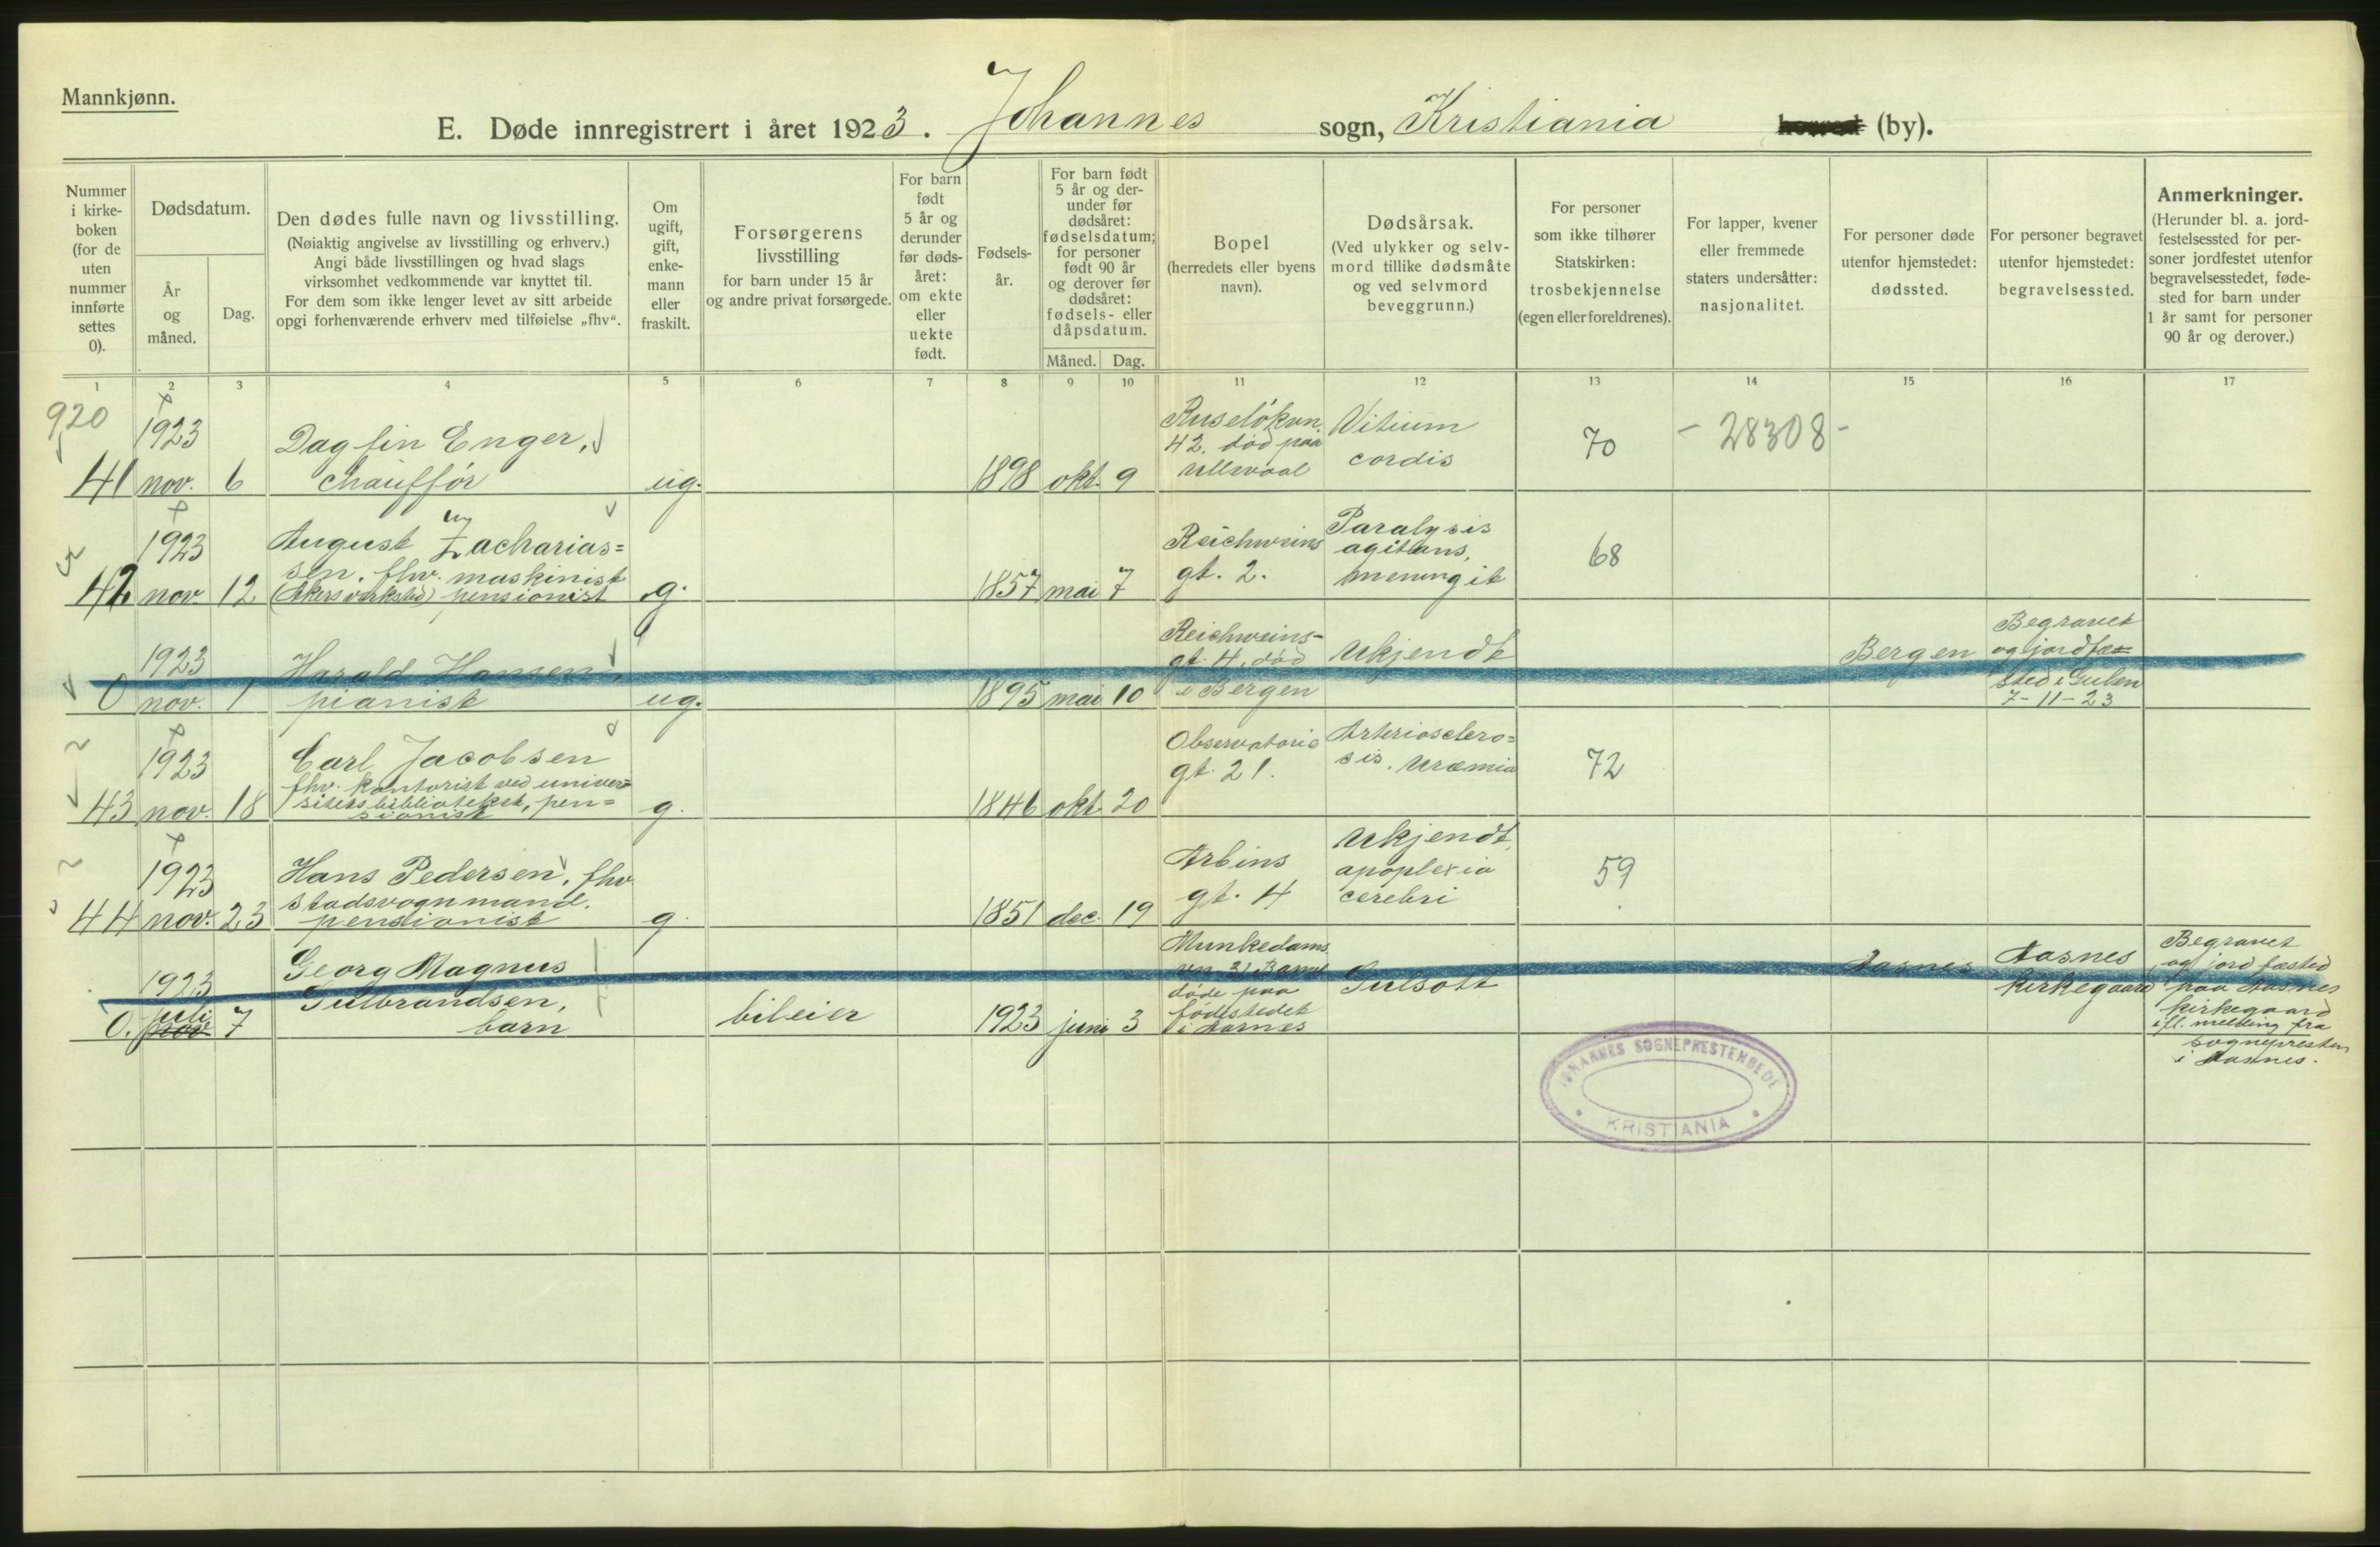 Mannkjønn.
E. Døde innregistrert i året 1923. Johannes sogn, Kristiania herred (by).
Nummer
i kirke-
boken
(for de
uten
nummer
innførte
settes
0).
Dødsdatum.
År
og
måned.
Dag.
Den dødes fulle navn og livsstilling.
(Nøiaktig angivelse av livsstilling og erhverv.)
Angi både livsstillingen og hvad slags
virksomhet vedkommende var knyttet til.
For dem som ikke lenger levet av sitt arbeide
opgi forhenværende erhverv med tilføielse „fhv“.
Om
ugift,
gift,
enke-
mann
eller
fraskilt.
Forsørgerens
livsstilling
for barn under 15 år
og andre privat forsørgede.
For barn
født
5 år og
derunder
før døds-
året:
om ekte
eller
uekte
født.
Fødsels-
år.
For barn født
5 år og der-
under før
dødsåret:
fødselsdatum;
for personer
født 90 år
og derover før
dødsåret:
fødsels- eller
dåpsdatum.
Måned. Dag.
Bopel
(herredets eller byens
navn).
Dødsårsak.
(Ved ulykker og selv-
mord tillike dødsmåte
og ved selvmord
beveggrunn.)
For personer
som ikke tilhører
Statskirken:
trosbekjennelse
(egen eller foreldrenes).
For lapper, kvener
eller fremmede
staters undersåtter:
nasjonalitet.
For personer døde
utenfor hjemstedet:
dødssted.
For personer begravet
utenfor hjemstedet:
begravelsessted.
Anmerkninger.
(Herunder bl. a. jord-
festelsessted for per-
soner jordfestet utenfor
begravelsesstedet, føde-
sted for barn under
1 år samt for personer
90 år og derover.)
1 2 3 4 5 6 7 8 9 10 11 12 13 14 15 16 17
920
41
1923
nov. 6
Dagfin Enger,
chauffør
ug.
1898 okt. 9
Ruseløkvn.
42. død paa
Ullevaal
Vitium
cordis
70
- 28308 -
42
1923
nov. 12
August Zacharias=
sen, fhv. maskinist
(Akersverksted) pensionist
g.
1857 mai 7
Reichweins
gt. 2.
Paralysis
agitans,
meningit
68
0
1923
nov. 1
Harald Hansen,
pianist
ug.
1895 mai 10
Reichweins-
gt. 4, død
i Bergen
Ukjendt
Bergen
Begravet
og jordfæ=
sted i Gulen
7-11-23
43
1923
nov. 18
Carl Jacobsen
fhv. kontorist ved univer=
sitetsbiblioteket, pen=
sionist
g.
1846 okt. 20
Observatorie
gt. 21.
Arteriosclero=
sis. Uræmia
72
44
1923
nov. 23
Hans Pedersen, fhv
stadsvognmand.
pensionist
g.
1851 dec. 19
Arbins
gt. 4
Ukjendt,
apoplexia
cerebri
59
0.
1923
juli
nov 7
Georg Magnus
Gulbrandsen,
barn
bileier
1923 juni 3
Munkedams
vn. 31 Barnet
døde paa
fødestedet
i Aasnes
Gulsott
Aasnes
Aasnes
kirkegaard
Begravet
og jordfæsted
paa Aasnes
kirkegaard
ifl. melding fra
sognepresten
i Aasnes.
JOHANNES SOGNEPRESTEMBEDE
KRISTIANIA